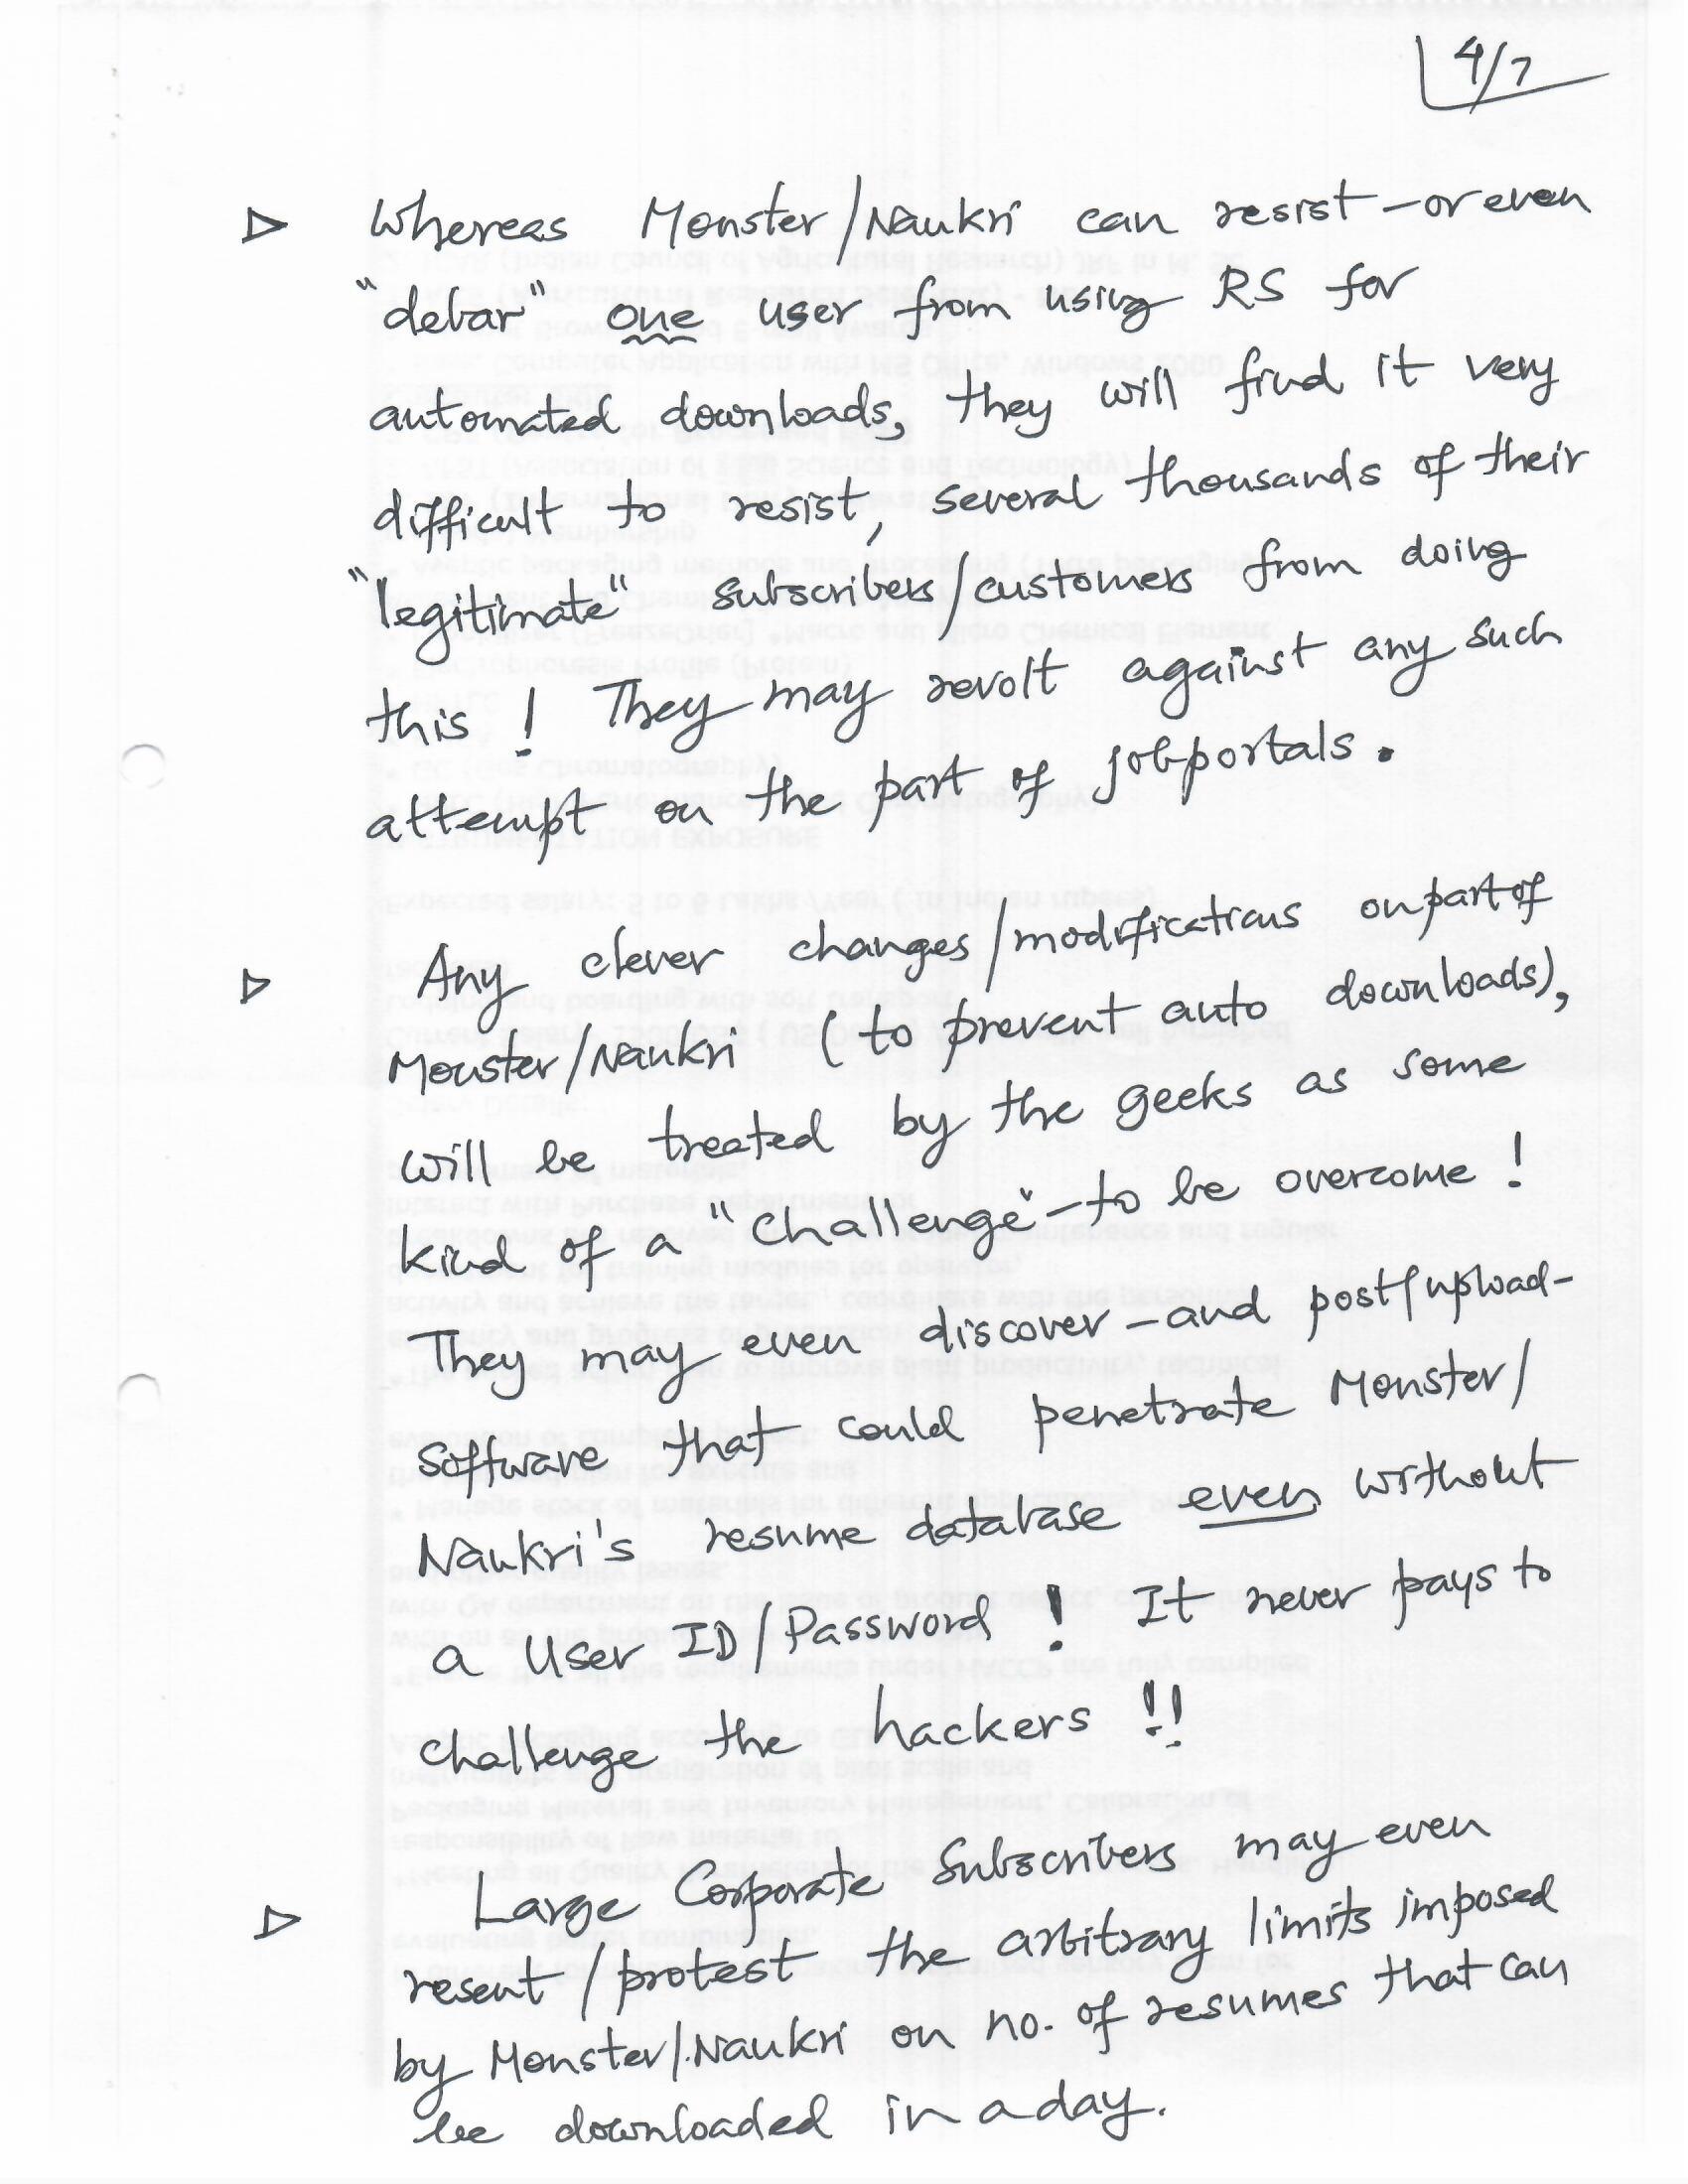 4/7
▷ Whereas Monster/Naukri can resist - or even
"debar" one user from using RS for
automated downloads, they will find it very
difficult to resist, several thousands of their
"legitimate" subscribers/customers from doing
this ! They may revolt against any such
attempt on the part of jobportals.
▷ Any clever changes/modifications on part of
Monster/Naukri (to prevent auto downloads),
will be treated by the geeks as some
kind of a "challenge" - to be overcome !
They may even discover - and post/upload -
software that could penetrate Monster/
Naukri's resume database even without
a User ID/Password ! It never pays to
challenge the hackers !!
▷ Large Corporate Subscribers may even
resent/protest the arbitrary limits imposed
by Monster/Naukri on no. of resumes that can
be downloaded in a day.